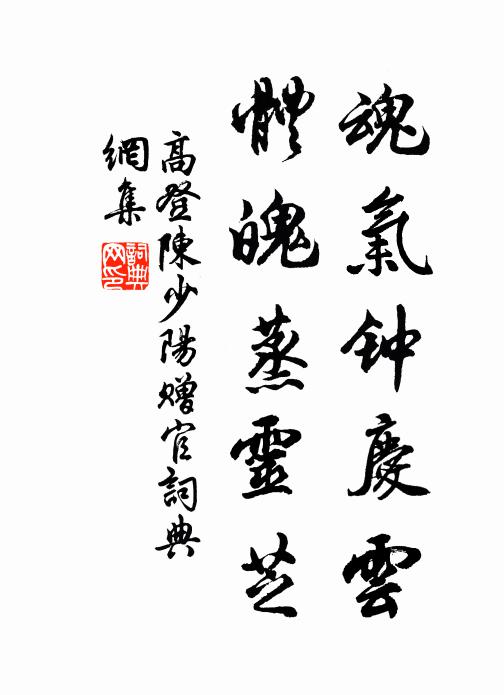 魂氣钟慶雲
體魄蒸靈芝
高登陳少陽赠官詞典
網集
詞典
网印